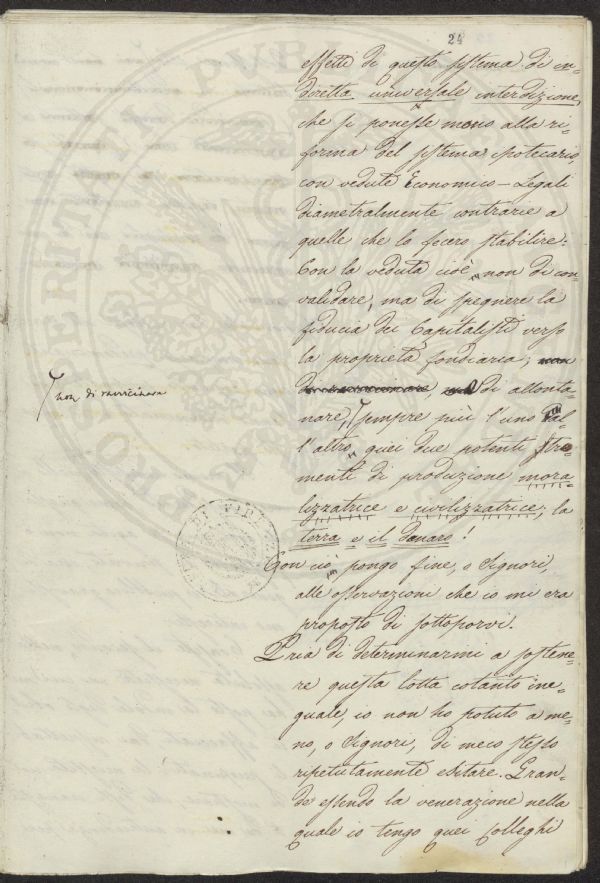 24
effetti di questo sistema di in=
diretta universale interdizione,
che si ponesse mano alla ri=
forma del sistema ipotecario,
con vedute Economico-Legali
diametralmente contrarie a
quelle che lo fecero stabilire:
Con la veduta cioè, non di con
validare, ma di spegnere la
fiducia dei Capitalisti verso
la proprietà fondiaria; non
di ravvicinare, ma di allonta=
nare, sempre più l'uno dal=
l'altro, quei due potenti stru=
menti di produzione mora=
lizzatrice e civilizzatrice; la
terra e il Danaro!
non di ravvicinare
Con ciò pongo fine, o Signori,
alle osservazioni che io mi era
proposto di sottoporvi.
Pria di determinarmi a sostene=
re questa lotta cotanto ine=
guale, io non ho potuto a me=
no, o Signori, di meco stesso
ripetutamente esitare. Gran=
de essendo la venerazione nella
quale io tengo quei Colleghi
PROSPERITATI PUBLICAE